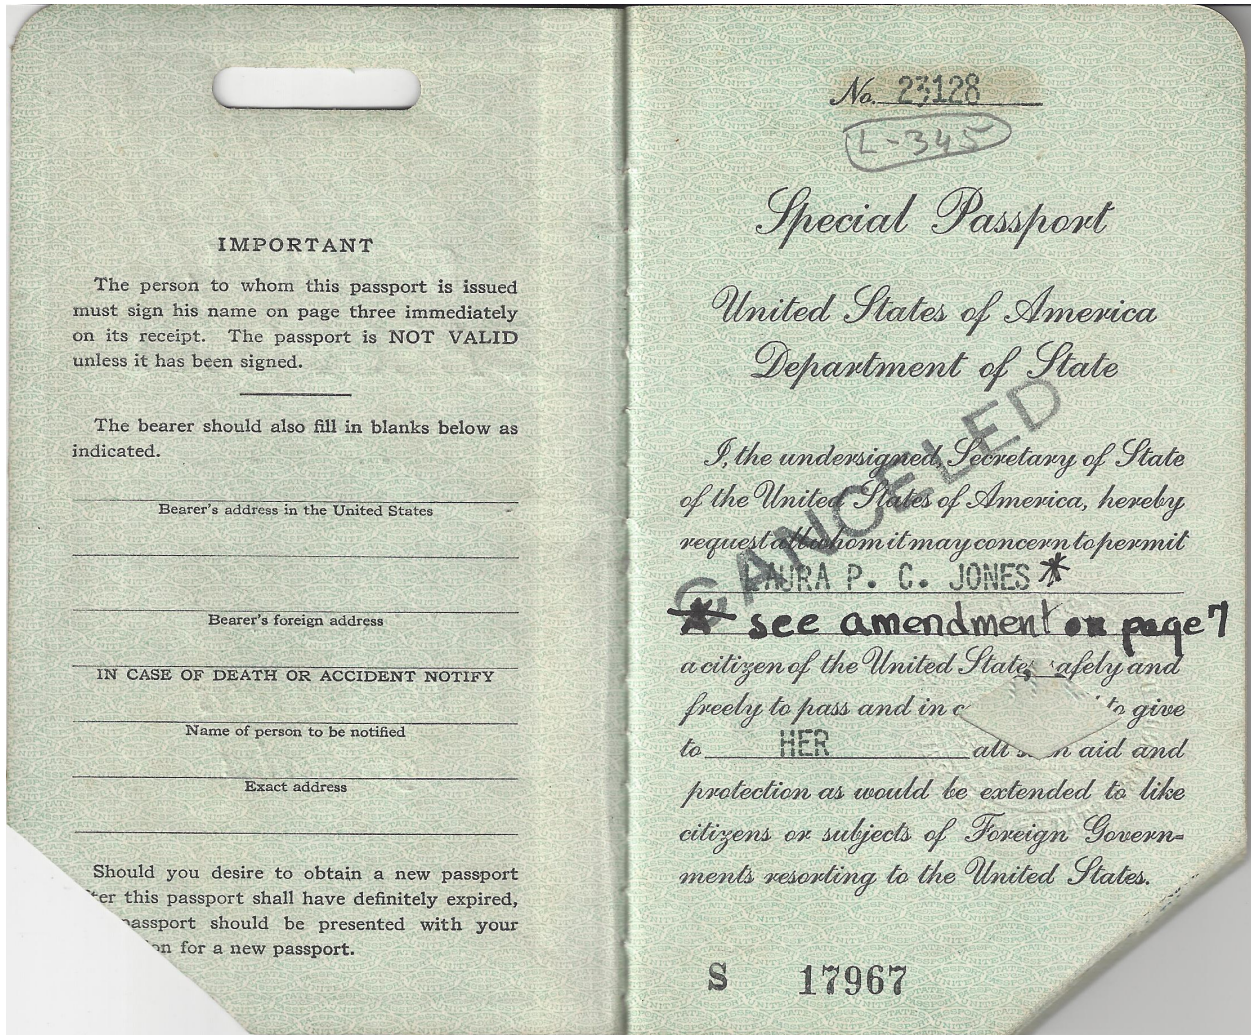 IMPORTANT
The person to whom this passport is issued
must sign his name on page three immediately
on its receipt. The passport is NOT VALID
unless it has been signed.
The bearer should also fill in blanks below as
indicated.
Bearer's address in the United States
Bearer's foreign address
IN CASE OF DEATH OR ACCIDENT NOTIFY
Name of person to be notified
Exact address
Should you desire to obtain a new passport
this passport shall have definitely expired,
passport should be presented with your
for a new passport.
No. 23128
L-345
Special Passport
United States of America
Department of State
CANCELED
I, the undersigned, Secretary of State
of the United States of America, hereby
request all whom it may concern to permit
LAURA P. C. JONES *
* see amendment on page 7
a citizen of the United States safely and
freely to pass and in to give
to HER all such aid and
protection as would be extended to like
citizens or subjects of Foreign Govern=
ments resorting to the United States.
S 17967